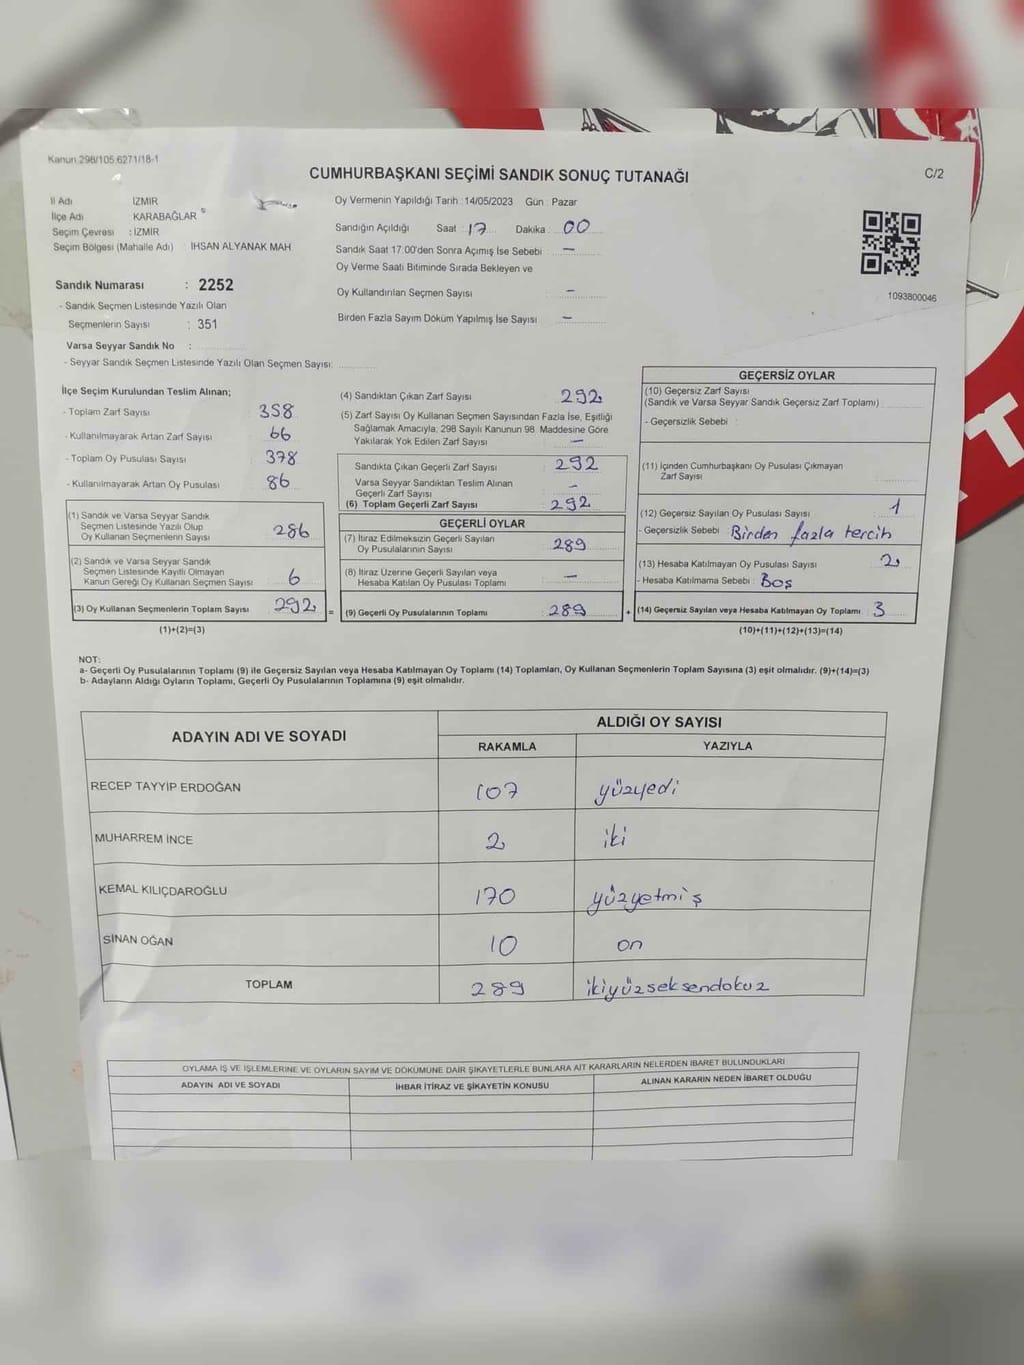 Kanun 298/105 6271/18-1
CUMHURBAŞKANI SEÇİMİ SANDIK SONUÇ TUTANAĞI
C/2
İl Adı İZMİR
İlçe Adı KARABAĞLAR
Seçim Çevresi : İZMİR
Seçim Bölgesi (Mahalle Adı) : İHSAN ALYANAK MAH
Oy Vermenin Yapıldığı Tarih : 14/05/2023 Gün : Pazar
Sandığın Açıldığı Saat : 17 Dakika : 00
Sandık Saat 17:00'den Sonra Açımış İse Sebebi : -
Oy Verme Saati Bitiminde Sırada Bekleyen ve
Oy Kullandırılan Seçmen Sayısı : -
Birden Fazla Sayım Döküm Yapılmış İse Sayısı : -
1093800046
Sandık Numarası : 2252
- Sandık Seçmen Listesinde Yazılı Olan
Seçmenlerin Sayısı : 351
Varsa Seyyar Sandık No :
- Seyyar Sandık Seçmen Listesinde Yazılı Olan Seçmen Sayısı:
İlçe Seçim Kurulundan Teslim Alınan;
- Toplam Zarf Sayısı 358
- Kullanılmayarak Artan Zarf Sayısı 66
- Toplam Oy Pusulası Sayısı 378
- Kullanılmayarak Artan Oy Pusulası 86
(1) Sandık ve Varsa Seyyar Sandık
Seçmen Listesinde Yazılı Olup
Oy Kullanan Seçmenlerin Sayısı 286
(2) Sandık ve Varsa Seyyar Sandık
Seçmen Listesinde Kayıtlı Olmayan
Kanun Gereği Oy Kullanan Seçmen Sayısı 6
(3) Oy Kullanan Seçmenlerin Toplam Sayısı 292 =
(1)+(2)=(3)
(4) Sandıktan Çıkan Zarf Sayısı 292
(5) Zarf Sayısı Oy Kullanan Seçmen Sayısından Fazla İse, Eşitliği
Sağlamak Amacıyla, 298 Sayılı Kanunun 98. Maddesine Göre
Yakılarak Yok Edilen Zarf Sayısı -
Sandıkta Çıkan Geçerli Zarf Sayısı 292
Varsa Seyyar Sandıktan Teslim Alınan
Geçerli Zarf Sayısı -
(6) Toplam Geçerli Zarf Sayısı 292
GEÇERLİ OYLAR
(7) İtiraz Edilmeksizin Geçerli Sayılan
Oy Pusulalarının Sayısı 289
(8) İtiraz Üzerine Geçerli Sayılan veya
Hesaba Katılan Oy Pusulası Toplamı -
(9) Geçerli Oy Pusulalarının Toplamı 289 +
GEÇERSİZ OYLAR
(10) Geçersiz Zarf Sayısı
(Sandık ve Varsa Seyyar Sandık Geçersiz Zarf Toplamı)
- Geçersizlik Sebebi :
(11) İçinden Cumhurbaşkanı Oy Pusulası Çıkmayan
Zarf Sayısı
(12) Geçersiz Sayılan Oy Pusulası Sayısı 1
- Geçersizlik Sebebi : Birden fazla tercih
(13) Hesaba Katılmayan Oy Pusulası Sayısı 2
- Hesaba Katılmama Sebebi : Boş
(14) Geçersiz Sayılan veya Hesaba Katılmayan Oy Toplamı 3
(10)+(11)+(12)+(13)=(14)
NOT:
a- Geçerli Oy Pusulalarının Toplamı (9) ile Geçersiz Sayılan veya Hesaba Katılmayan Oy Toplamı (14) Toplamları, Oy Kullanan Seçmenlerin Toplam Sayısına (3) eşit olmalıdır. (9)+(14)=(3)
b- Adayların Aldığı Oyların Toplamı, Geçerli Oy Pusulalarının Toplamına (9) eşit olmalıdır.
ADAYIN ADI VE SOYADI
ALDIĞI OY SAYISI
RAKAMLA YAZIYLA
RECEP TAYYİP ERDOĞAN 107 yüzyedi
MUHARREM İNCE 2 iki
KEMAL KILIÇDAROĞLU 170 yüzyetmiş
SİNAN OĞAN 10 on
TOPLAM 289 ikiyüzseksendokuz
OYLAMA İŞ VE İŞLEMLERİNE VE OYLARIN SAYIM VE DÖKÜMÜNE DAİR ŞİKAYETLERLE BUNLARA AİT KARARLARIN NELERDEN İBARET BULUNDUKLARI
ADAYIN ADI VE SOYADI İHBAR İTİRAZ VE ŞİKAYETİN KONUSU ALINAN KARARIN NEDEN İBARET OLDUĞU